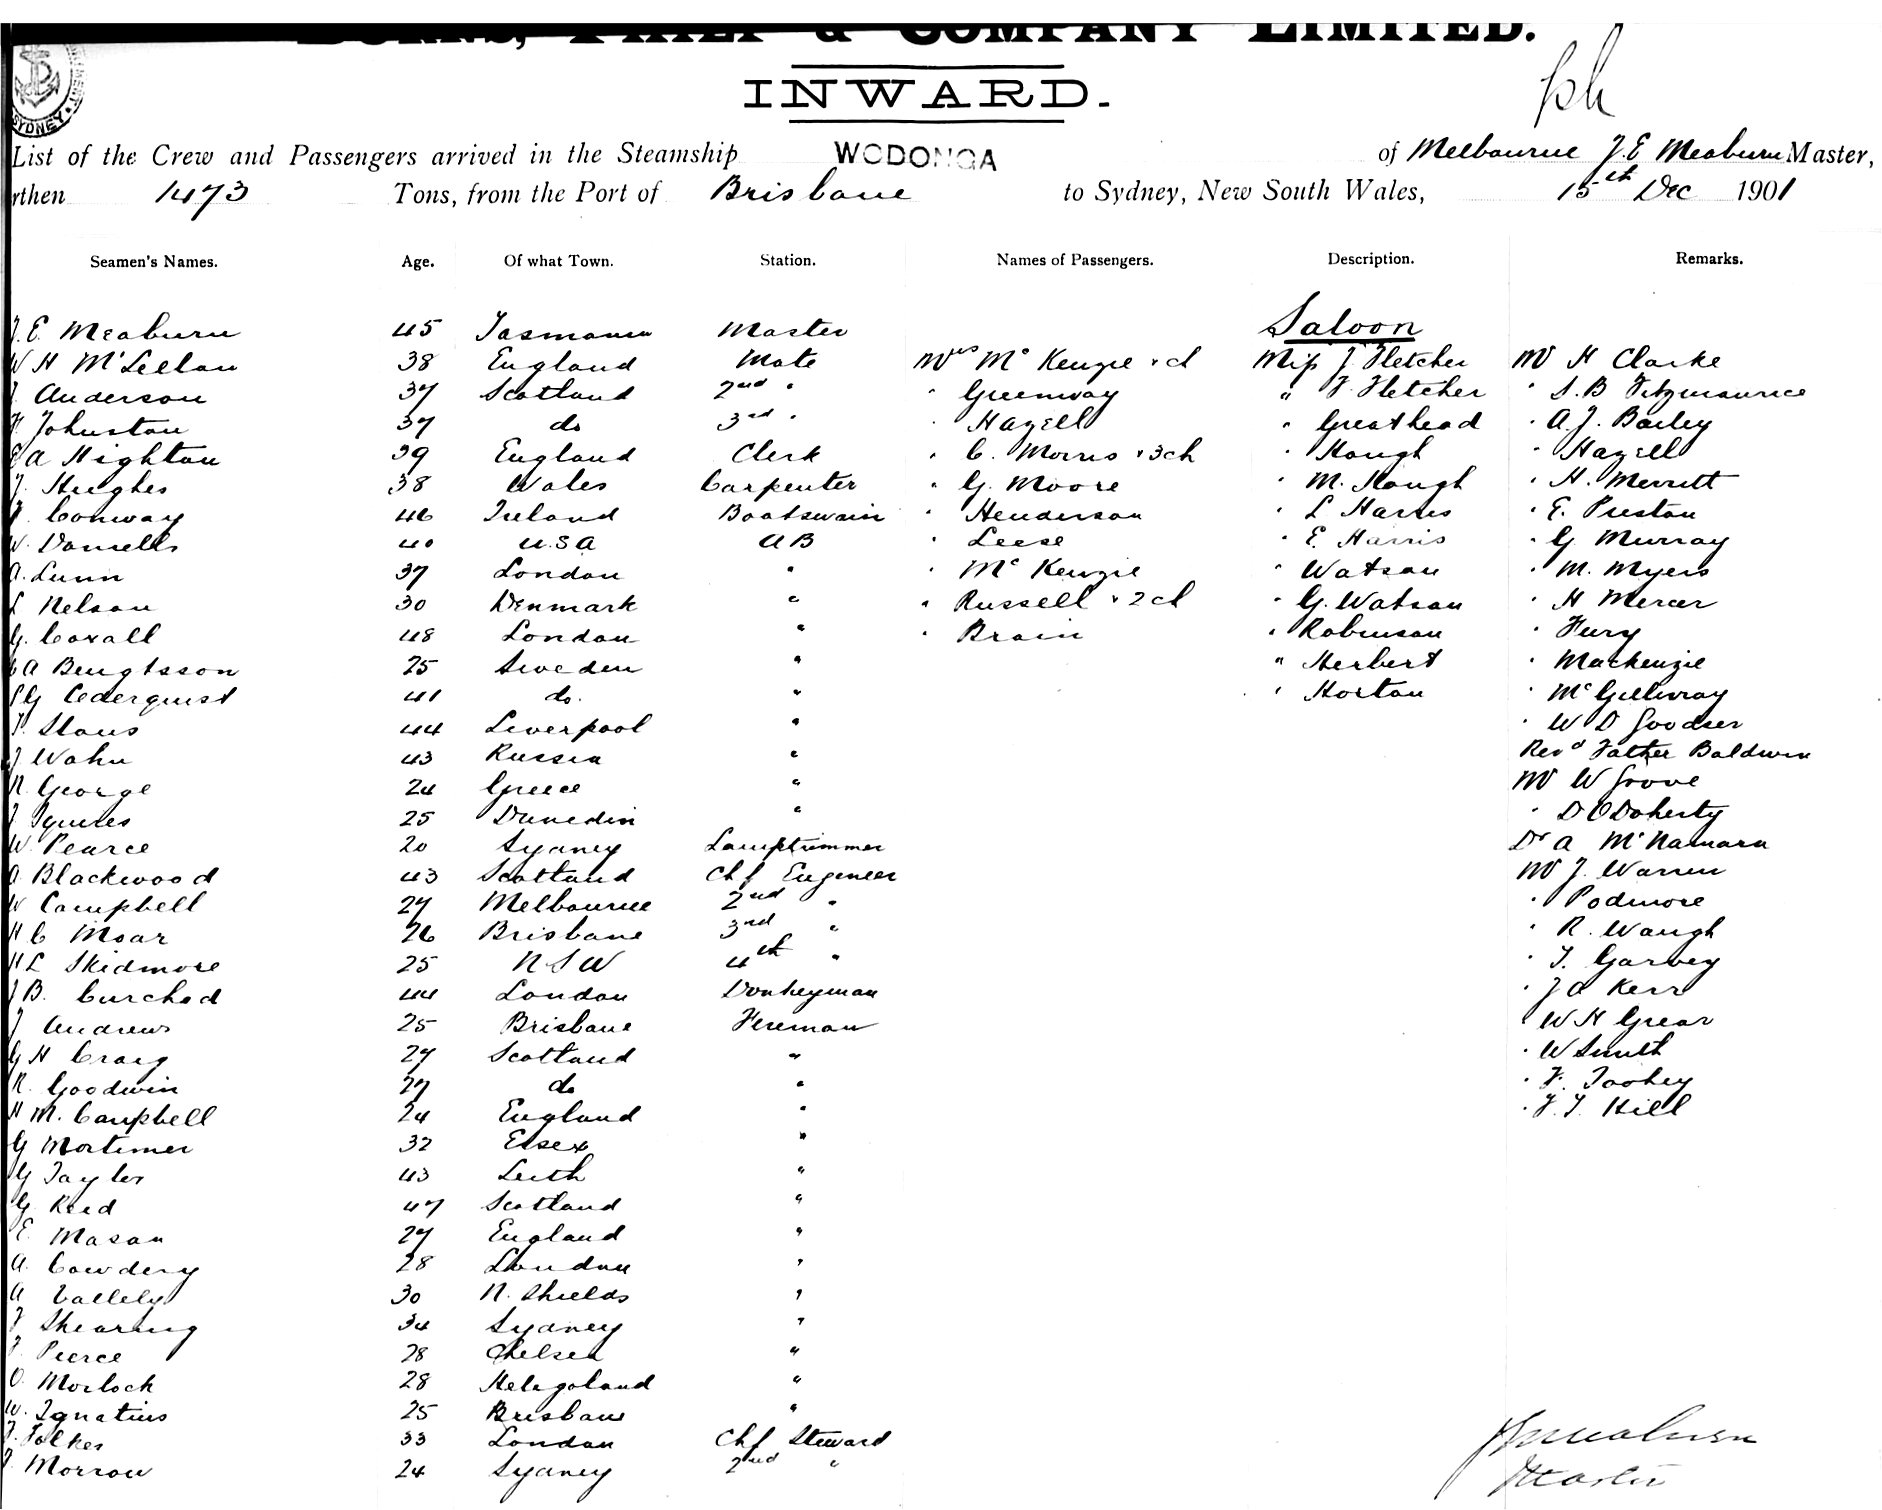 BURNS, PHILP & COMPANY LIMITED.
INWARD.
SYDNEY
List of the Crew and Passengers arrived in the Steamship WODONGA of Melbourne J. E Meaburn Master,
rthen 1473 Tons, from the Port of Brisbane to Sydney, New South Wales, 15th Dec 1901
Seamen's Names. Age. Of what Town. Station. Names of Passengers. Description. Remarks.
Saloon
J. E. Meaburn 45 Tasmania Master
W H McLellan 38 England Mate Mrs McKenzie & ch Miss J Fletcher Mr H Clarke
J. Anderson 37 Scotland 2nd " " Greenway " F Fletcher " S. B Fitzmaurice
Johnston 37 do 3rd " " Hazell " Greathead " A. J. Bailey
E A Highton 39 England Clerk " C. Morris & 3ch " Hough " Hazell
J. Hughes 38 Wales Carpenter " G. Moore " M. Hough " H. Merritt
Conway 46 Ireland Boatswain " Henderson " L Harris " E. Preston
W. Daniells 40 U.S.A AB " Leese " E. Harris " G. Murray
A. Lunn 37 London " " McKenzie " Watson " M. Myers
L Nelson 30 Denmark " " Russell & 2 ch " G. Watson " H Mercer
G. Coxall 48 London " " Brain " Robinson " Fury
A Bengtsson 25 Sweden " " Herbert " Mackenzie
G Cederquist 41 do. " " Horton " McGillivray
44 Liverpool " " W D Goodser
J Wahn 43 Russia " Revd Father Baldwin
N. George 24 Greece " Mr W Grove
J Squires 25 Dunedin " " D O'Doherty
W. Pearce 20 Sydney Lamptrimmer Dr A McNamara
A Blackwood 43 Scotland Chf Engineer Mr J. Warren
W Campbell 27 Melbourne 2nd " " Podmore
H C Moar 26 Brisbane 3rd " " R. Waugh
H L Skidmore 25 N S W 4th " " T. Garvey
J B. Curchod 44 London Donkeyman " J A Kerr
J Andrews 25 Brisbane Fireman " W H Grear
G H Craig 27 Scotland " " W Smith
R. Goodwin 27 do " " F. Toohey
H M. Campbell 24 England " " F. T. Hill
G Mortimer 32 Essex "
G Taylor 43 Leith "
G. Reid 47 Scotland "
E. Mason 27 England "
A. Cowdery 28 London "
A Vallely 30 N. Shields "
Shearing 34 Sydney "
Pierce 28 Chelsea "
O. Morlock 28 Heligoland "
W. Ignatius 25 Brisbane "
Folkes 33 London Chf Steward
Morrow 24 Sydney 2nd "
J E Meaburn
Master